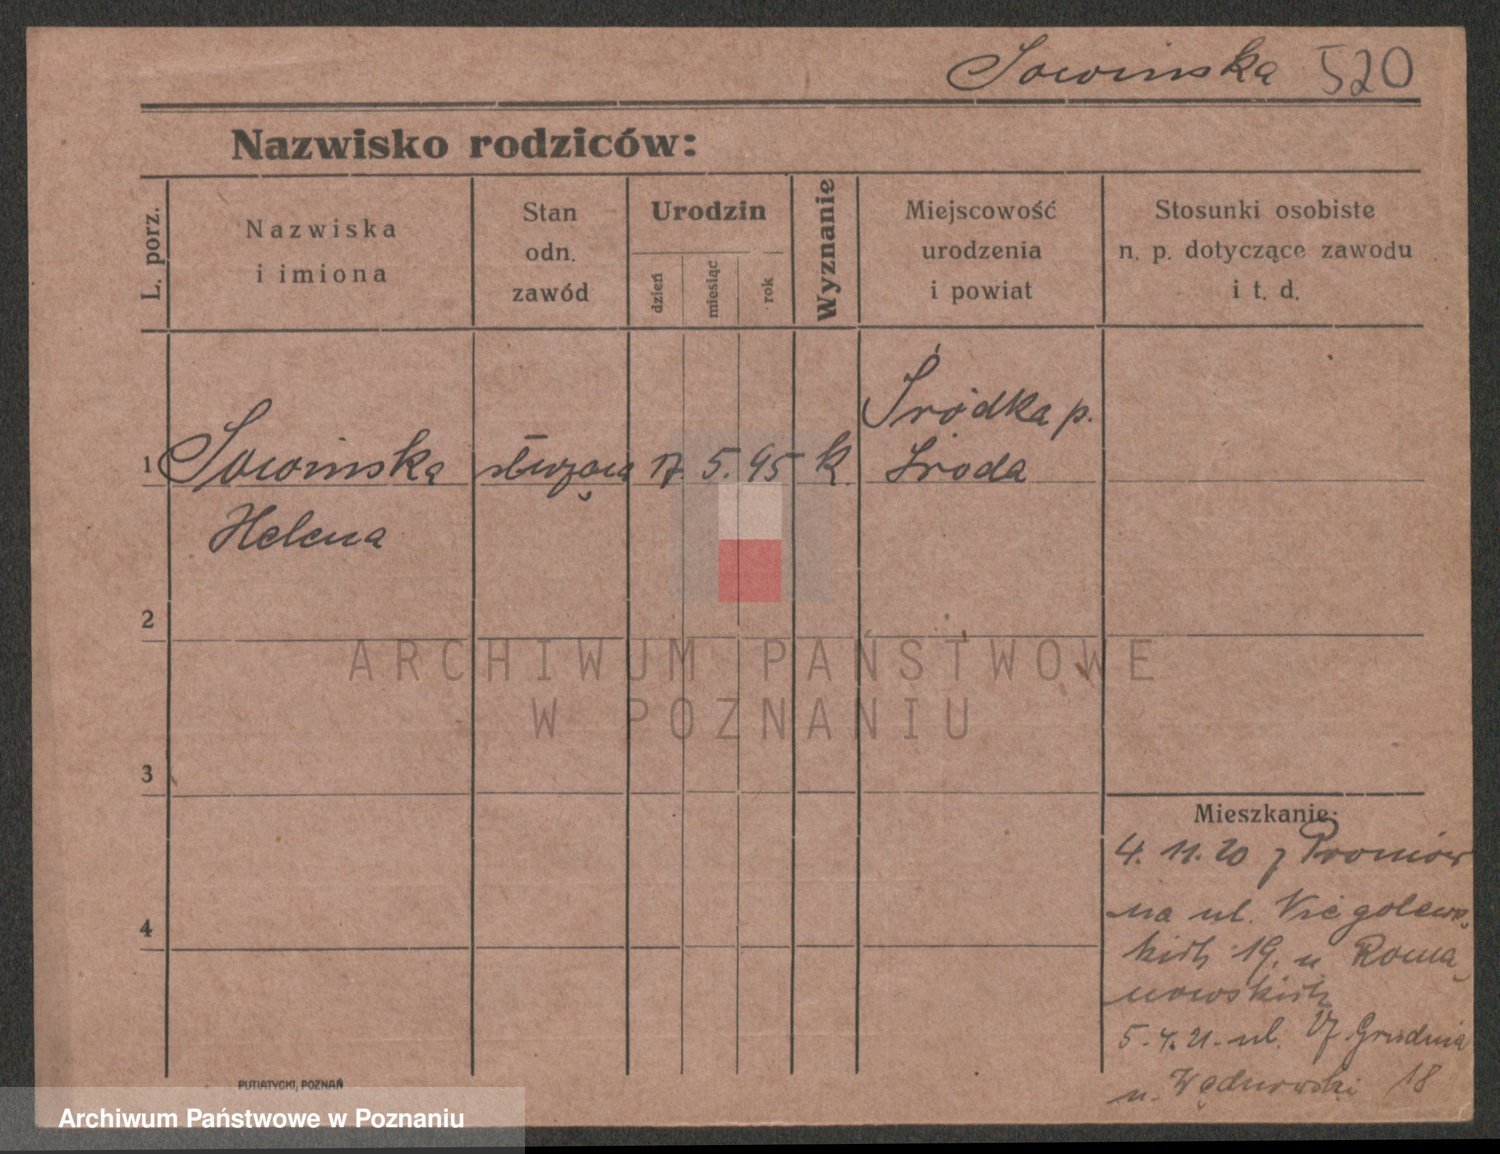 Sowińska 520
Nazwisko rodziców:
L. porz.
Nazwiska
i imiona
Stan
odn.
zawód
Urodzin
dzień
miesiąc
rok
Wyznanie
Miejscowość
urodzenia
i powiat
Stosunki osobiste
n. p. dotyczące zawodu
i t. d.
Śródka p.
1 Sowińska służąca 17. 5. 95 k. Środa
Helena
2
ARCHIWUM PAŃSTWOWE
W POZNANIU
3
Mieszkanie:
4. 11. 20 z
na ul. Niegolews-
4
kich 19. u Roma-
nowskich
5. 4. 21. ul. 27 Grudnia
u. 18
PUTIATYCKI, POZNAŃ
Archiwum Państwowe w Poznaniu